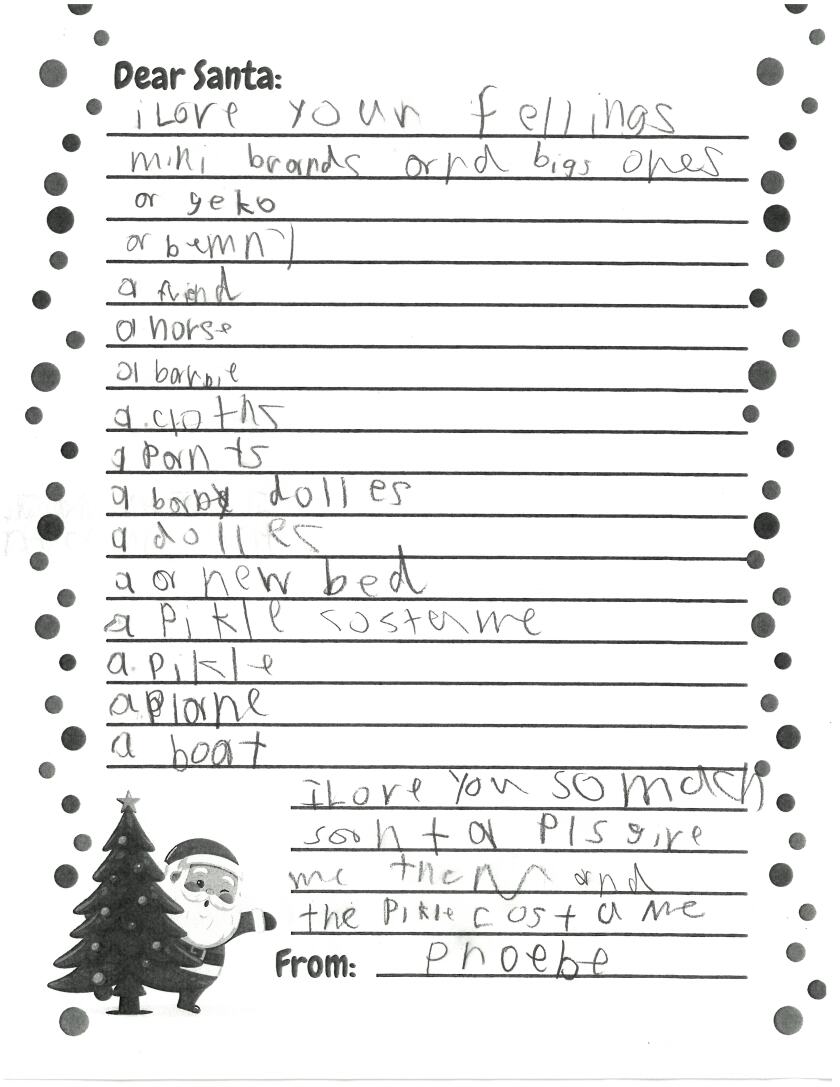 Dear Santa:
i Love your fellings
mini brands and bigs ones
or geko
or
a
a horse
a barbie
a cloths
a pants
a dolles
a dolles
a or new bed
a Pikle costume
a Pikle
a plane
a boat
I Love You so mach
santa Pls give
me them and
the Pikle costame
From: Phoebe